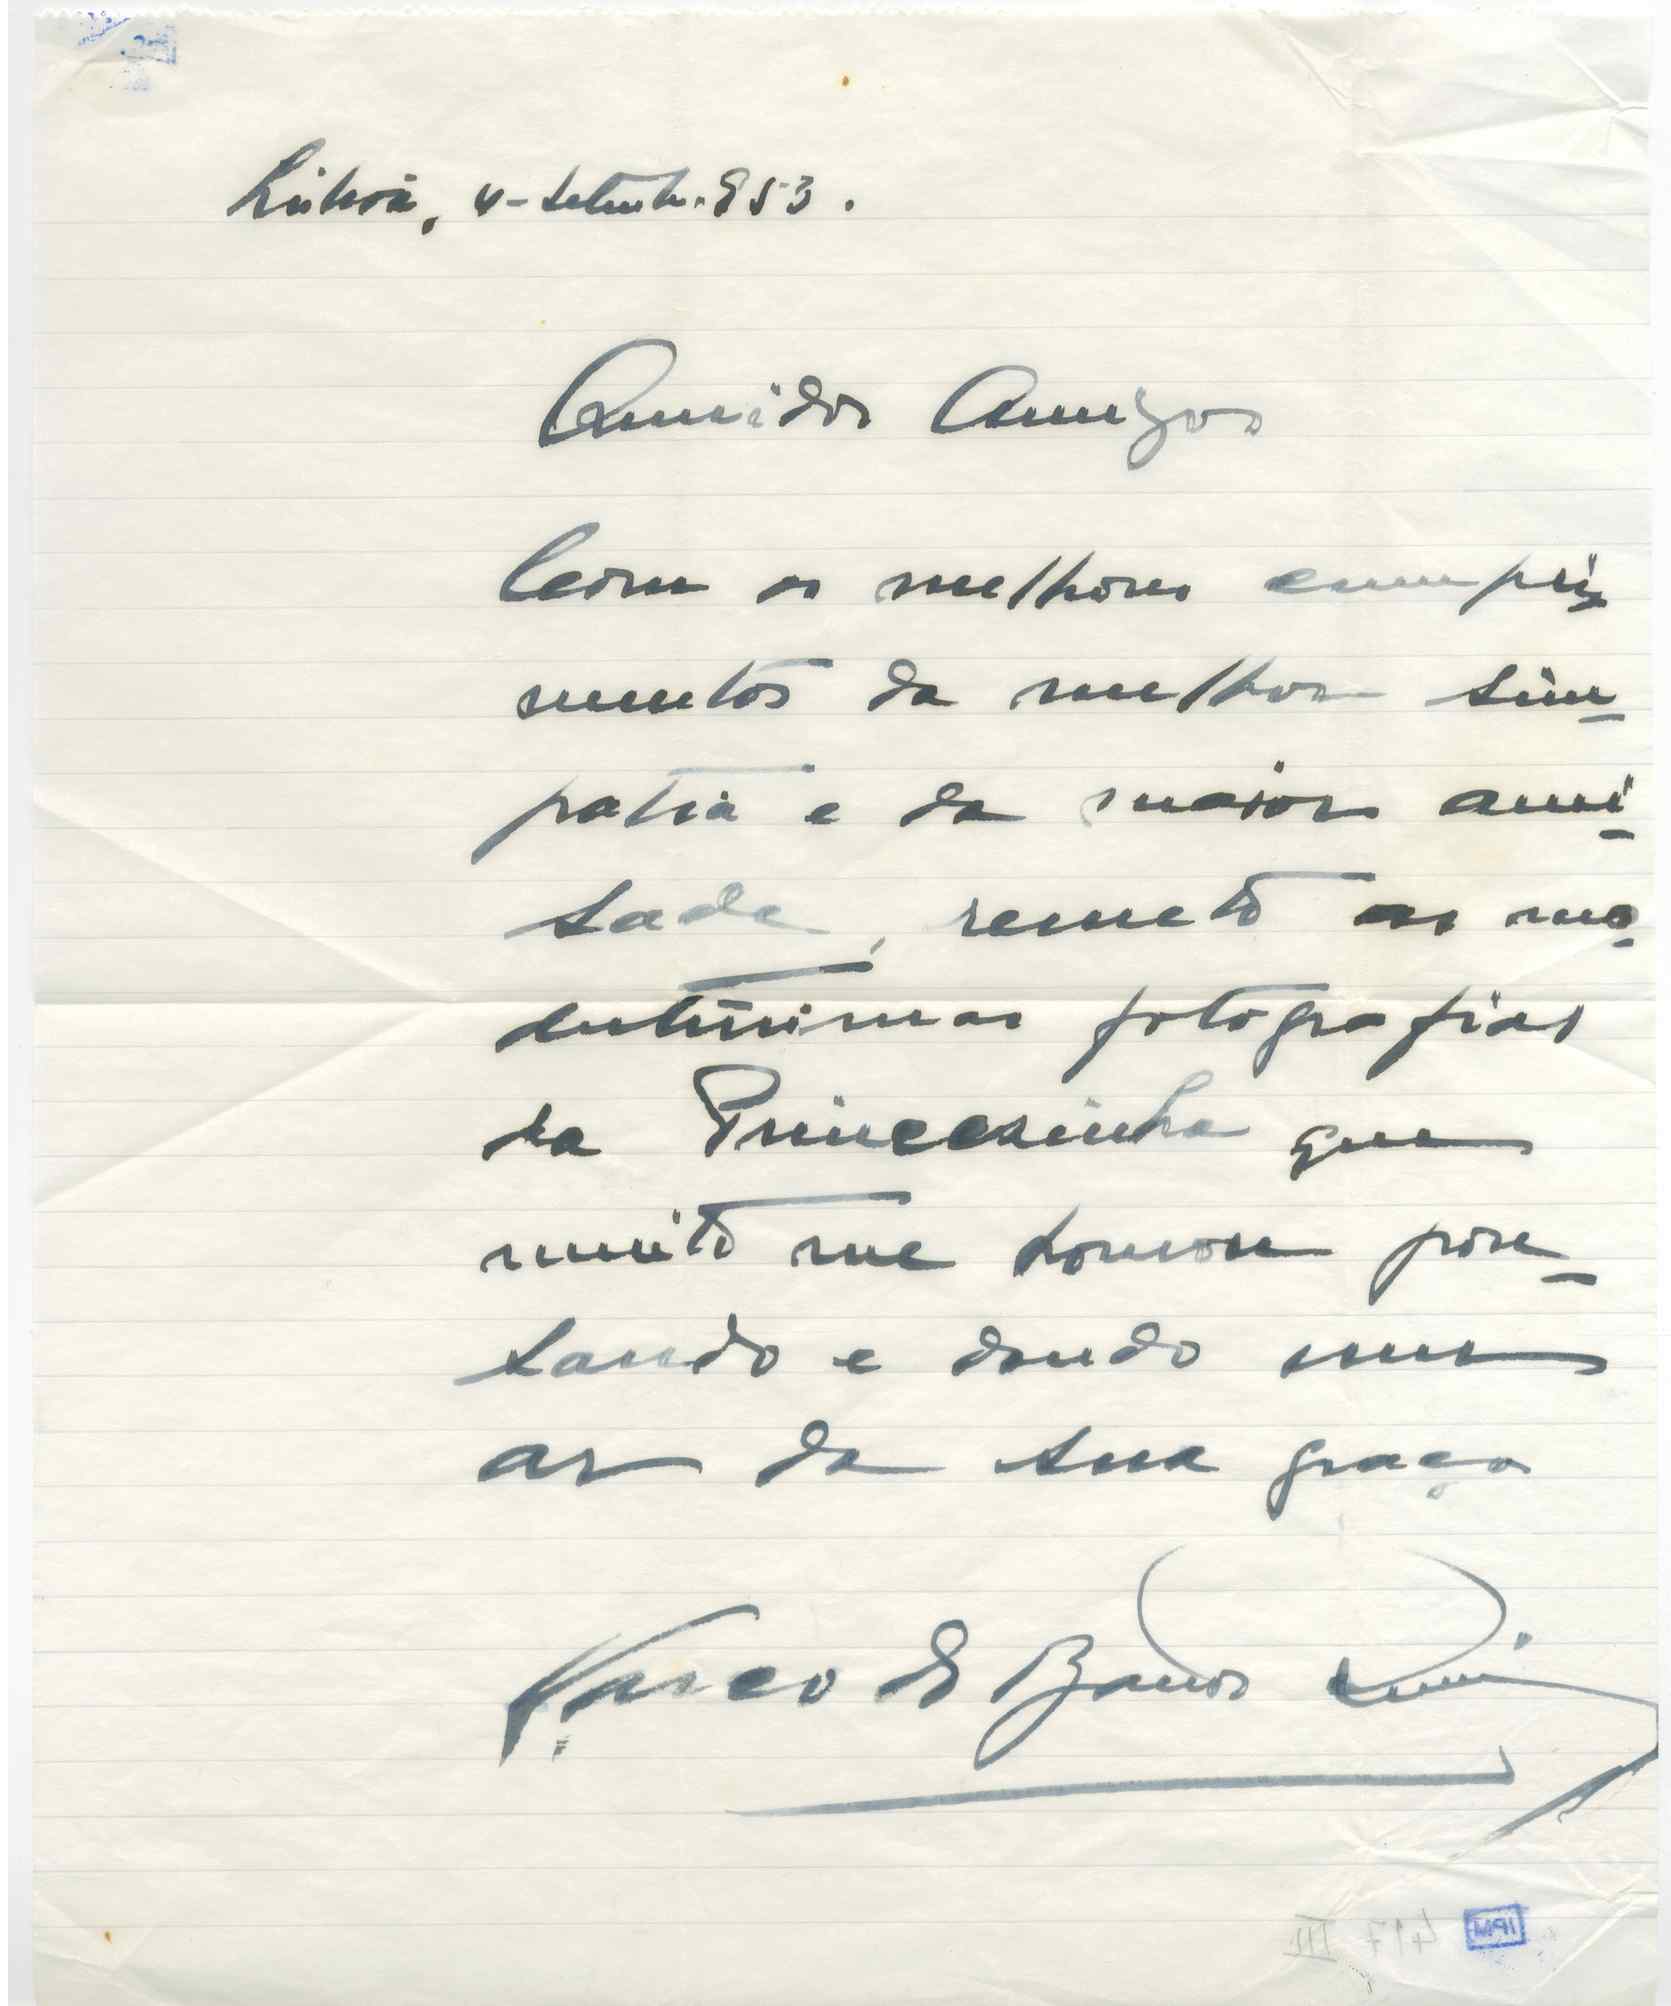 Lisboa, 4-Setemb. 953.
Queridos Amigos
Com os melhores cumpri-
mentos da melhor sim-
patia e da maior ami-
sade, remeto as mo-
destíssimas fotografias
da Princesinha que
muito me honrou pou-
sando e dando um
ar da sua graça
Vasco de Barros
IPM
417 III